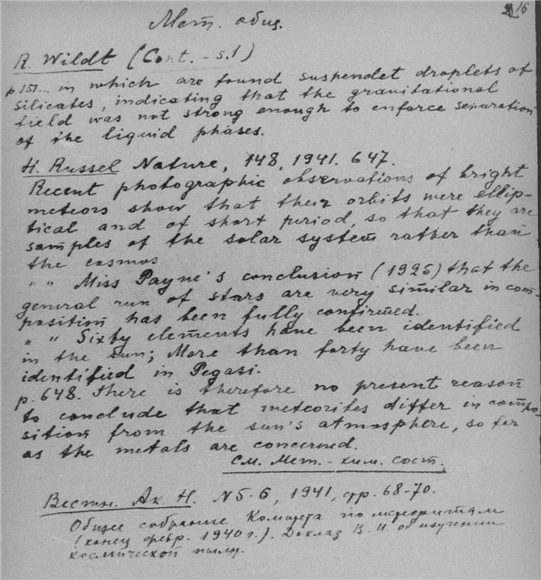 Мет. общ.
16
R. Wildt (Cont. - s.1)
p 151... in which are found suspendet droplets of
silicates, indicating that the gravitational
field was not strong enough to enforce separation
of the liquid phases.
H. Russel Nature, 148, 1941. 647.
Recent photographic observations of bright
meteors show that their orbits were ellip-
tical and of short period, so that they are
samples of the solar system rather than
the cosmos
" " Miss Payne's conclusion (1925) that the
general run of stars are very similar in com-
position has been fully confirmed.
" " Sixty elements have been identified
in the sun; More than forty have been
identified in Pegasi.
p. 648. There is therefore no present reason
to conclude that meteorites differ in compo-
sition from the sun's atmosphere, so far
as the metals are concerned.
См. Мет. - хим. сост.
Вестн. Ак. Н. N 5-6, 1941, стр. 68-70.
Общее собрание Комитета по метеоритам
(конец февр. 1940 г.). Доклад В. И. об изучении
космической пыли.